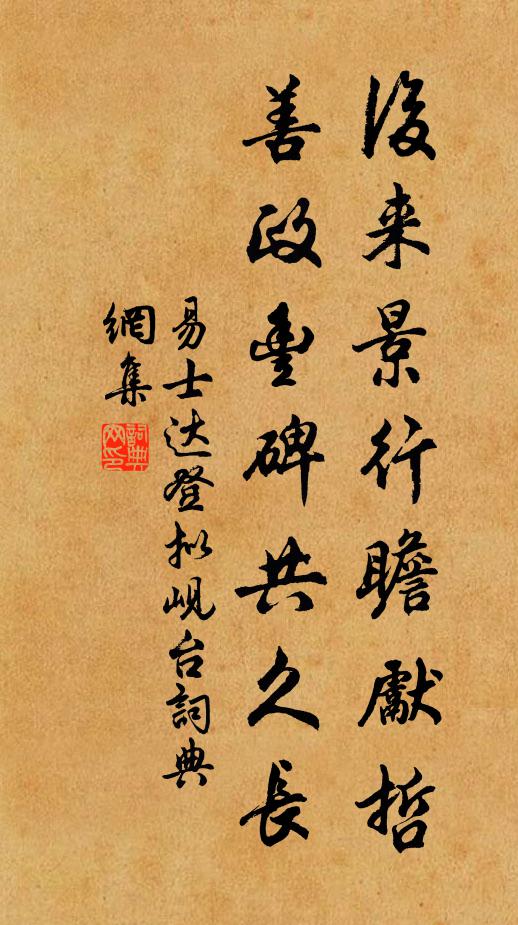 後来景行瞻獻哲
善政豊碑共久長
易士达登拟岘台詞典
網集
詞典
网印